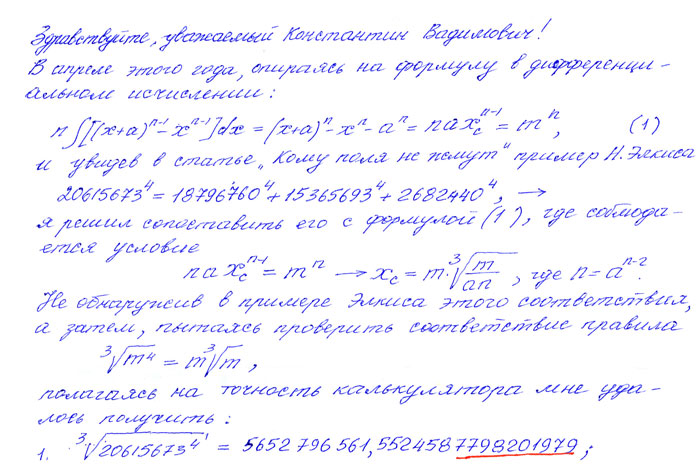 Здравствуйте, уважаемый Константин Вадимович!
В апреле этого года, опираясь на формулу в дифференци-
альном исчислении:
n∫[(x+a)ⁿ⁻¹-xⁿ⁻¹]dx = (x+a)ⁿ-xⁿ-aⁿ = n a x_cⁿ⁻¹ = mⁿ, (1)
и увидев в статье „Кому поля не жмут" пример Н. Элкиса
20615673⁴ = 18796760⁴ + 15365693⁴ + 2682440⁴, →
я решил сопоставить его с формулой (1), где соблюда-
ется условие
n a x_cⁿ⁻¹ = mⁿ → x_c = m·∛(m/an), где n = aⁿ⁻².
Не обнаружив в примере Элкиса этого соответствия,
а затем, пытаясь проверить соответствие правила
∛m⁴ = m∛m,
полагаясь на точность калькулятора мне уда-
лось получить:
1. ∛20615673⁴ = 5652796561,5524587798201979;